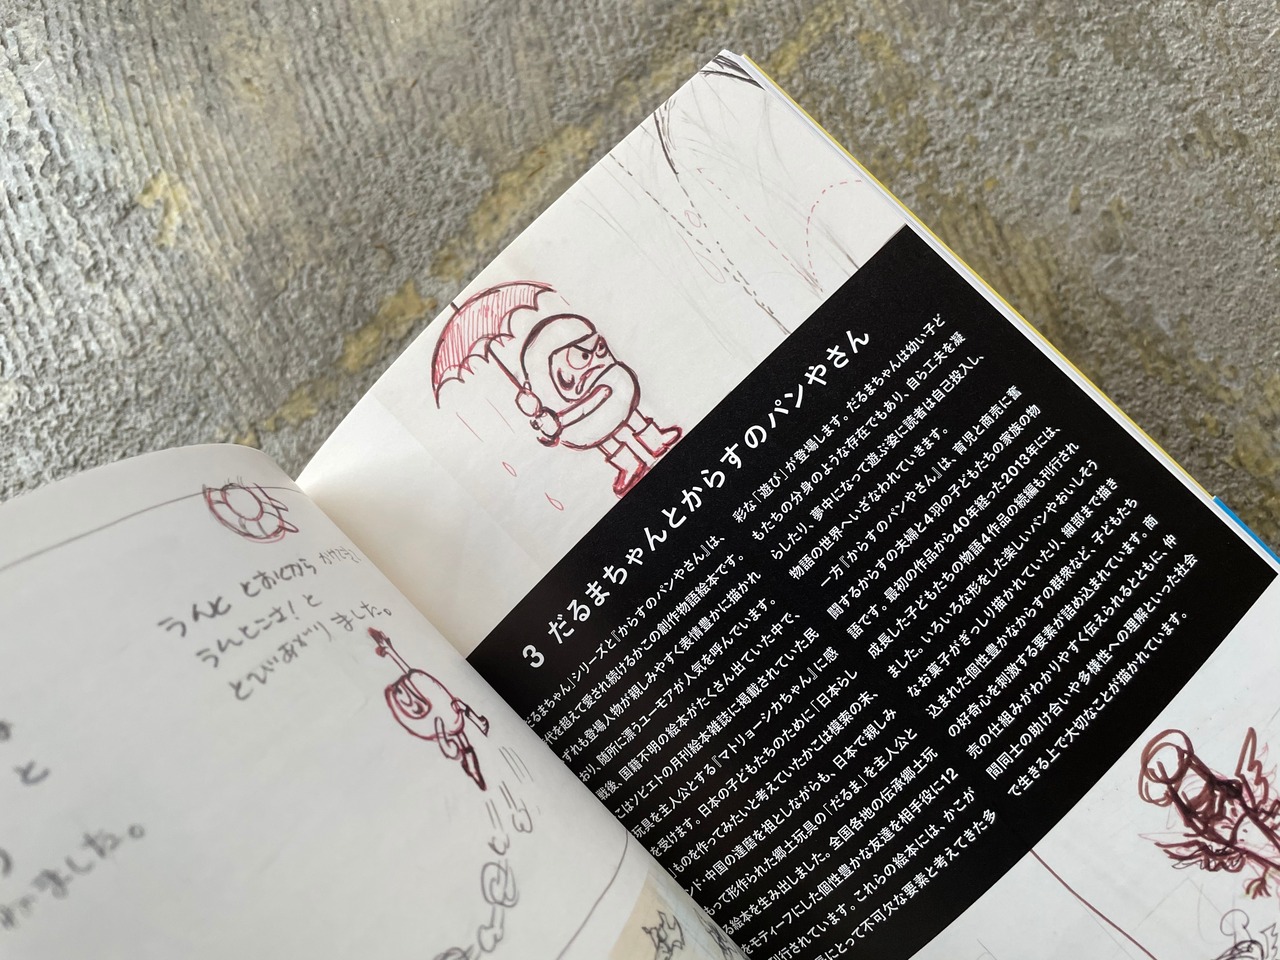 うんと とおくから
うんとこさ！と
とびあがり ました。
と
ました。
3 だるまちゃんとからすのパンやさん
だるまちゃん」シリーズと『からすのパンやさん』は、
代を超えて愛され続けるかこの創作物語絵本です。
ずれも登場人物が親しみやすく表情豊かに描かれ
おり、随所に漂うユーモアが人気を呼んでいます。
戦後、国籍不明の絵本がたくさん出ていた中で、
こはソビエトの月刊絵本雑誌に掲載されていた民
玩具を主人公とする『マトリョーシカちゃん』に感
を受けます。日本の子どもたちのために「日本らし
ものを作ってみたいと考えていたかこは模索の末、
ンド・中国の達磨を祖としながらも、日本で親しみ
もって形作られた郷土玩具の「だるま」を主人公と
る絵本を生み出しました。全国各地の伝承郷土玩
をモティーフにした個性豊かな友達を相手役に12
刊行されています。これらの絵本には、かこが
にとって不可欠な要素と考えてきた多
彩な「遊び」が登場します。だるまちゃんは幼い子ど
もたちの分身のような存在でもあり、自ら工夫を凝
らしたり、夢中になって遊ぶ姿に読者は自己投入し、
物語の世界へいざなわれていきます。
一方『からすのパンやさん』は、育児と商売に奮
闘するからすの夫婦と4羽の子どもたちの家族の物
語です。最初の作品から40年経った2013年には、
成長した子どもたちの物語4作品の続編も刊行され
ました。いろいろな形をした楽しいパンやおいしそう
なお菓子がぎっしり描かれていたり、細部まで描き
込まれた個性豊かなからすの群衆など、子どもたち
の好奇心を刺激する要素が詰め込まれています。商
売の仕組みがわかりやすく伝えられるとともに、仲
間同士の助け合いや多様性への理解といった社会
で生きる上で大切なことが描かれています。